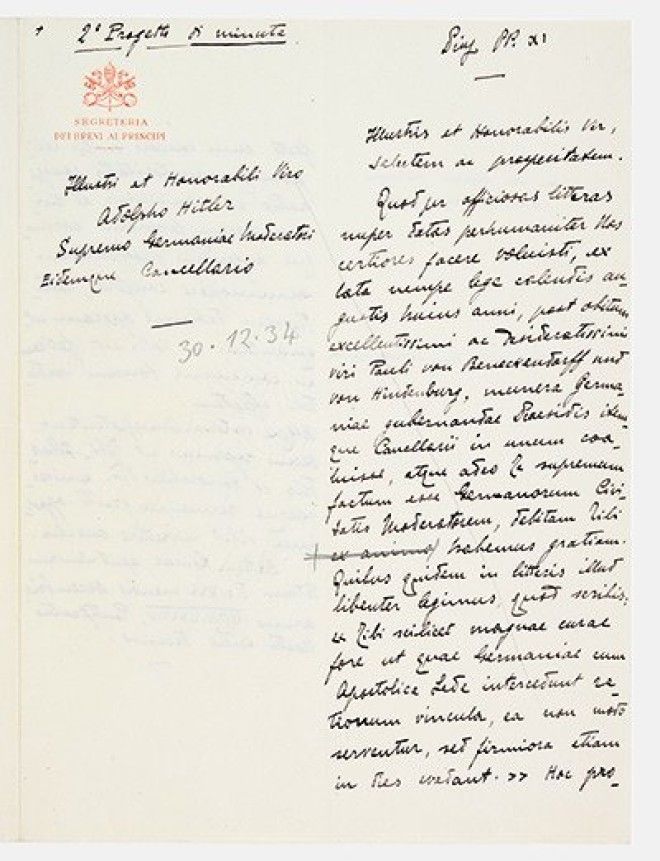 2º Progetto di minuta
SEGRETERIA
DEI BREVI AI PRINCIPI
Illustri et Honorabili Viro
Adolpho Hitler
Supremo Germaniae Moderatori
Eidemque Cancellario
30.12.34
Pius PP. XI
Illustris et Honorabilis Vir,
salutem ac prosperitatem.
Quod per officiosas litteras
nuper datas perhumaniter Nos
certiores facere voluisti, ex
lata nempe lege calendis au-
gustis huius anni, post obitum
excellentissimi ac desideratissimi
viri Pauli von Beneckendorff und
von Hindenburg, munera Germa-
niae gubernandae Praesidis item-
que Cancellarii in unum coa-
luisse, atque adeo Te supremum
factum esse Germanorum Civi-
tatis Moderatorem, debitam Tibi
ex animo habemus gratiam.
Quibus quidem in litteris illud
libenter legimus, quod scribis:
Tibi scilicet magnae curae
fore ut quae Germaniae cum
Apostolica Sede intercedunt ra-
tionum vincula, ea non modo
serventur, sed firmiora etiam
in dies evadant. >> Hoc pro-